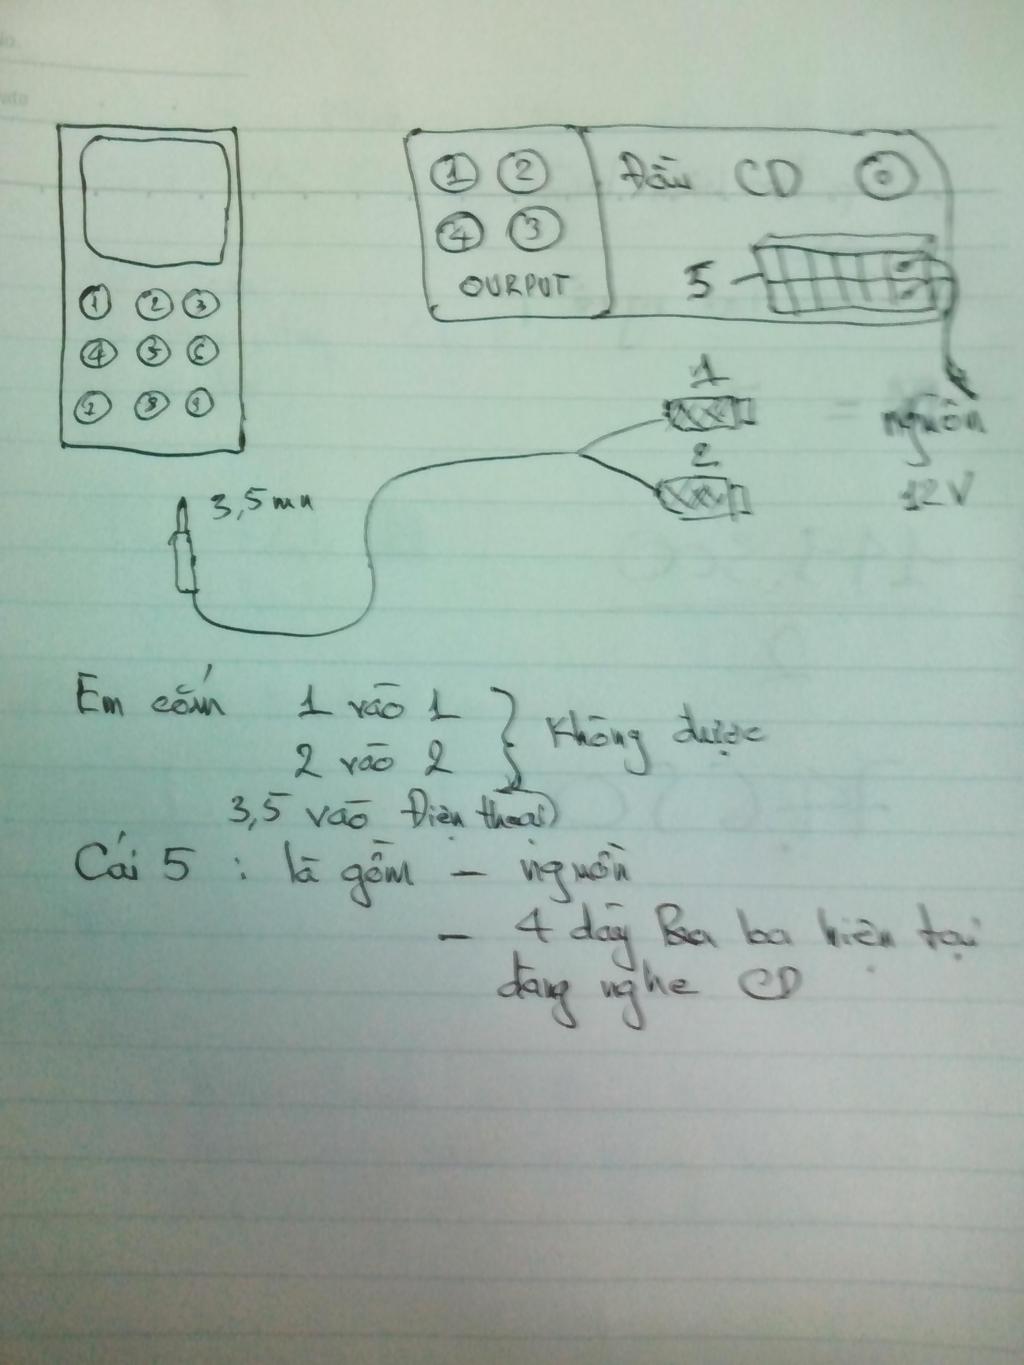 1 2 Đầu CD
4 3
OURPUT
5
1 2 3
4 5 6
8 9
1
2
nguồn
12V
3,5 mm
Em cắm 1 vào 1
2 vào 2
Không được
3,5 vào Điện thoại
Cái 5 : là gồm - nguồn
- 4 dây loa hiện tại
đang nghe CD